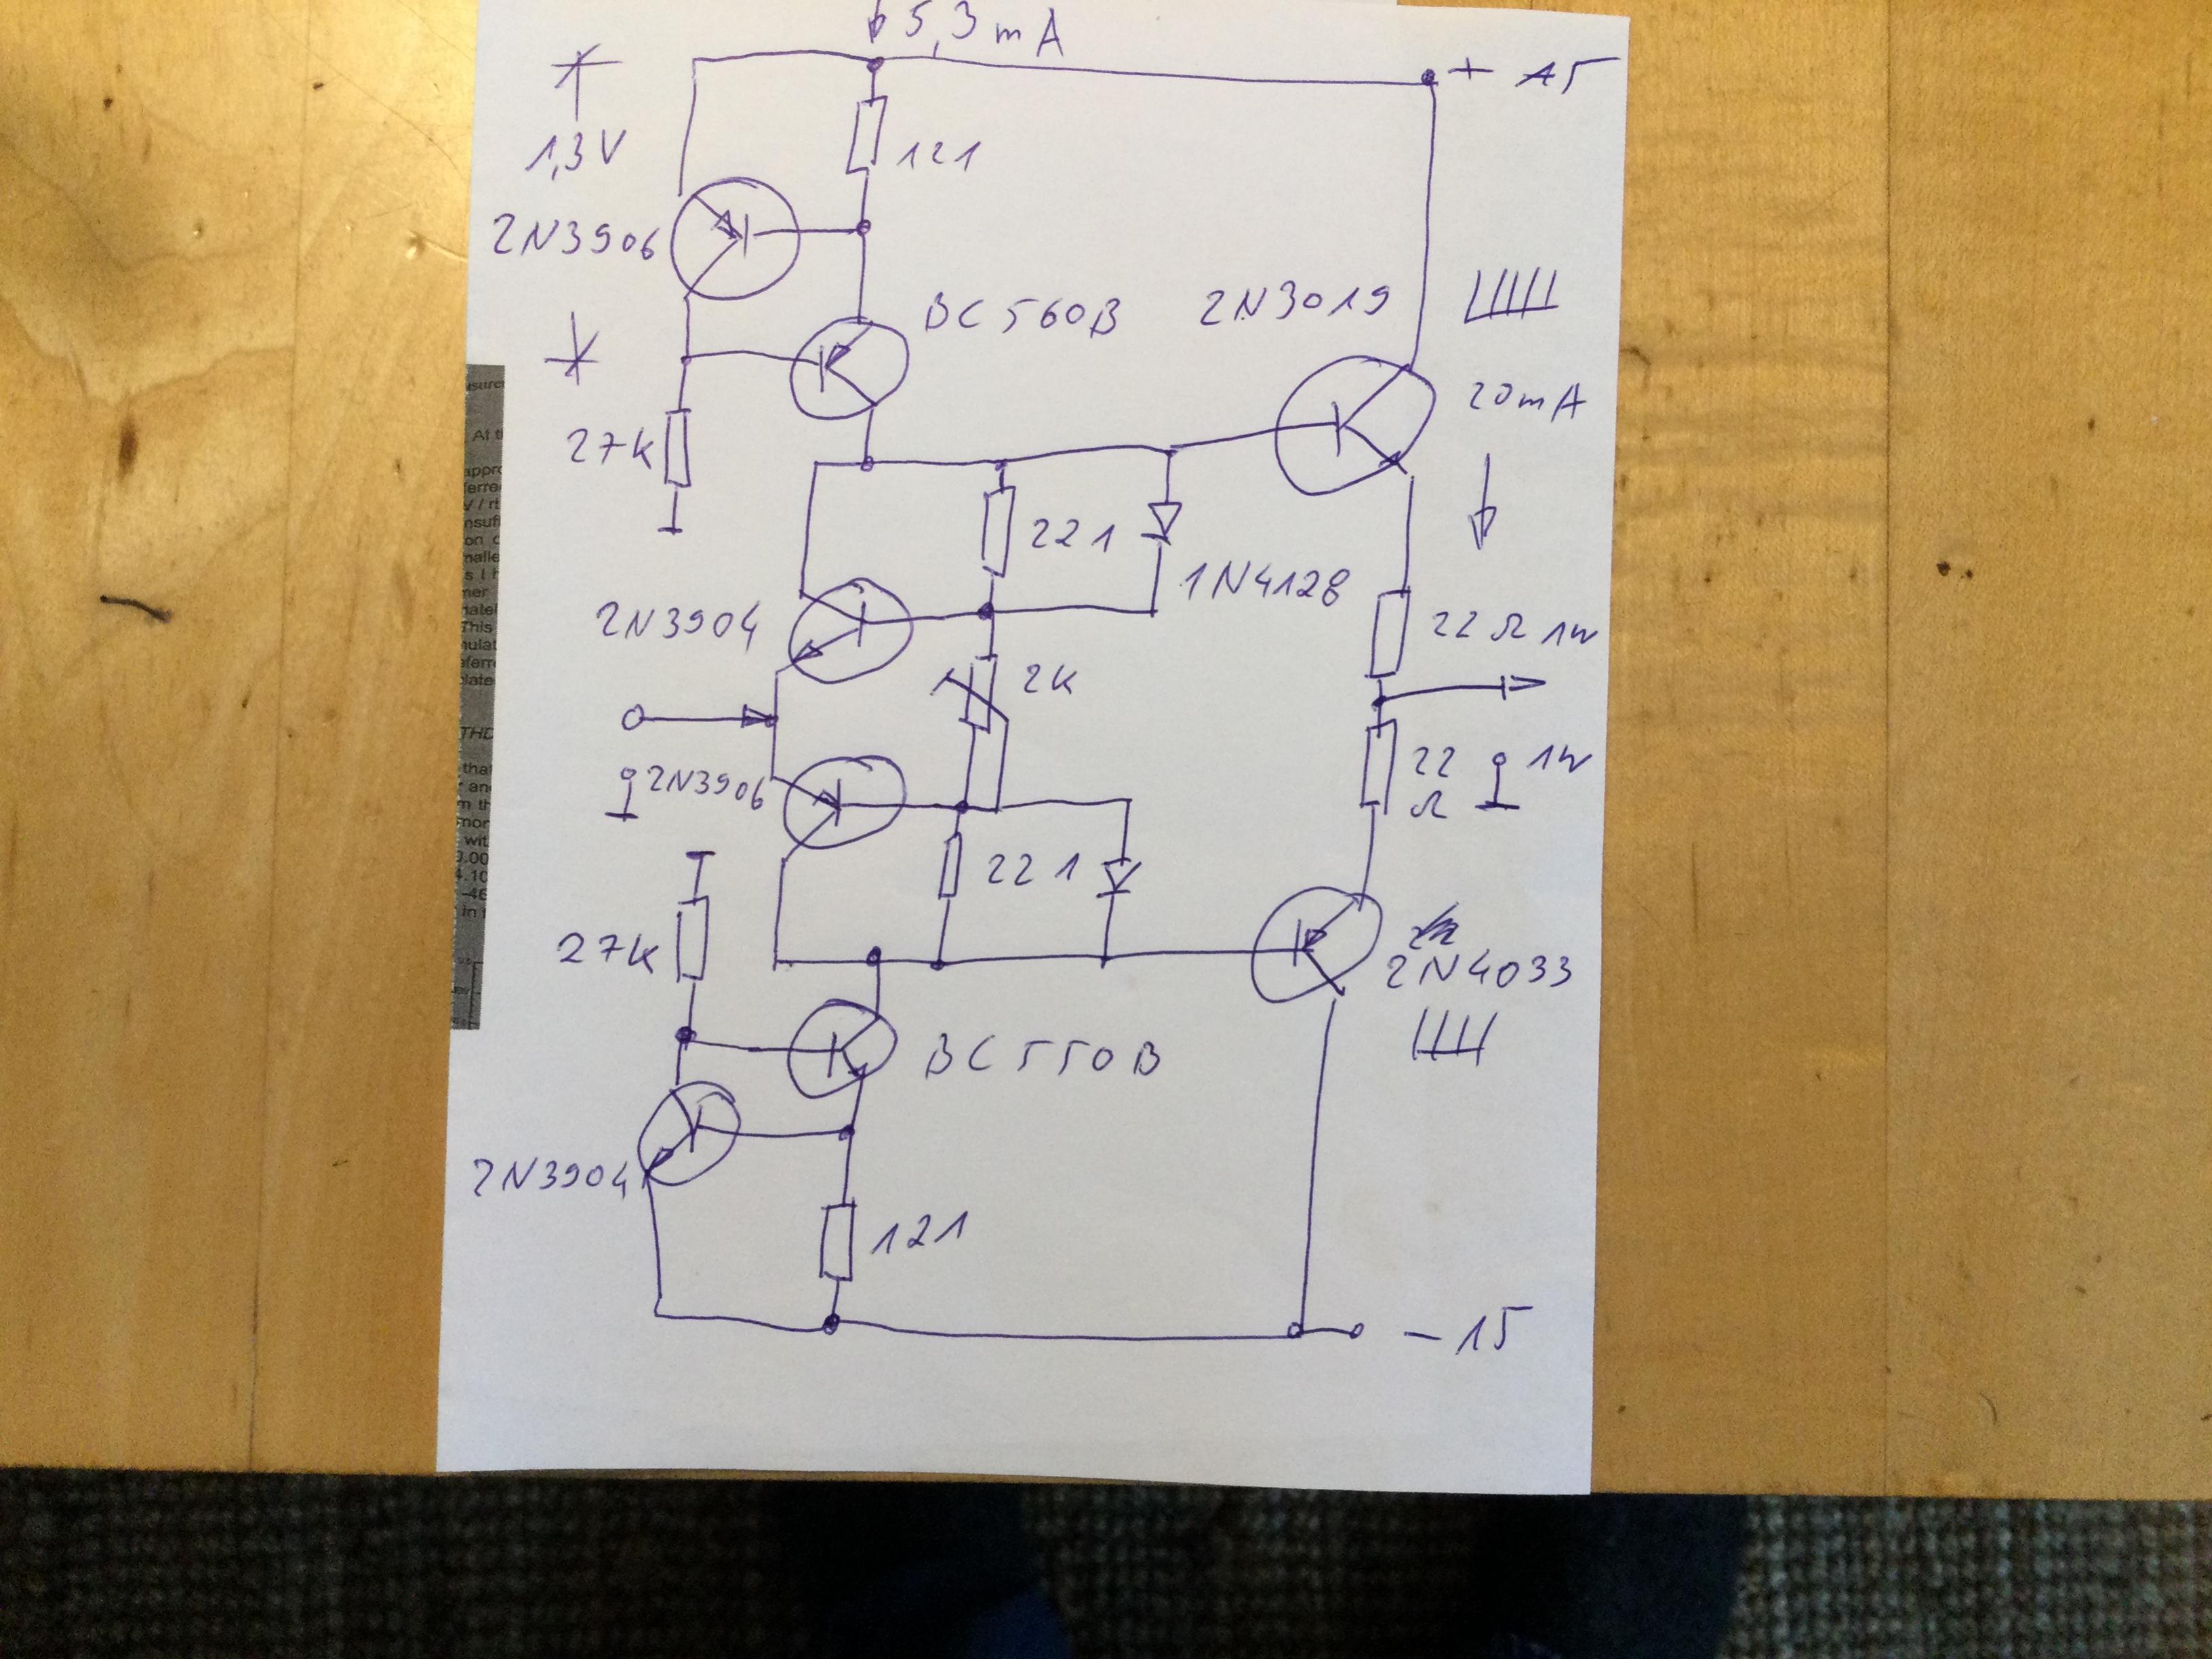 5,3 mA
+ 15
1,3V
121
2N3906
BC 560B
2N3019
20mA
27k
221
1N4128
2N3904
22 Ω 1W
2k
2N3906
22 Ω
1W
221
27k
2N4033
BC 550B
2N3904
121
- 15
THD